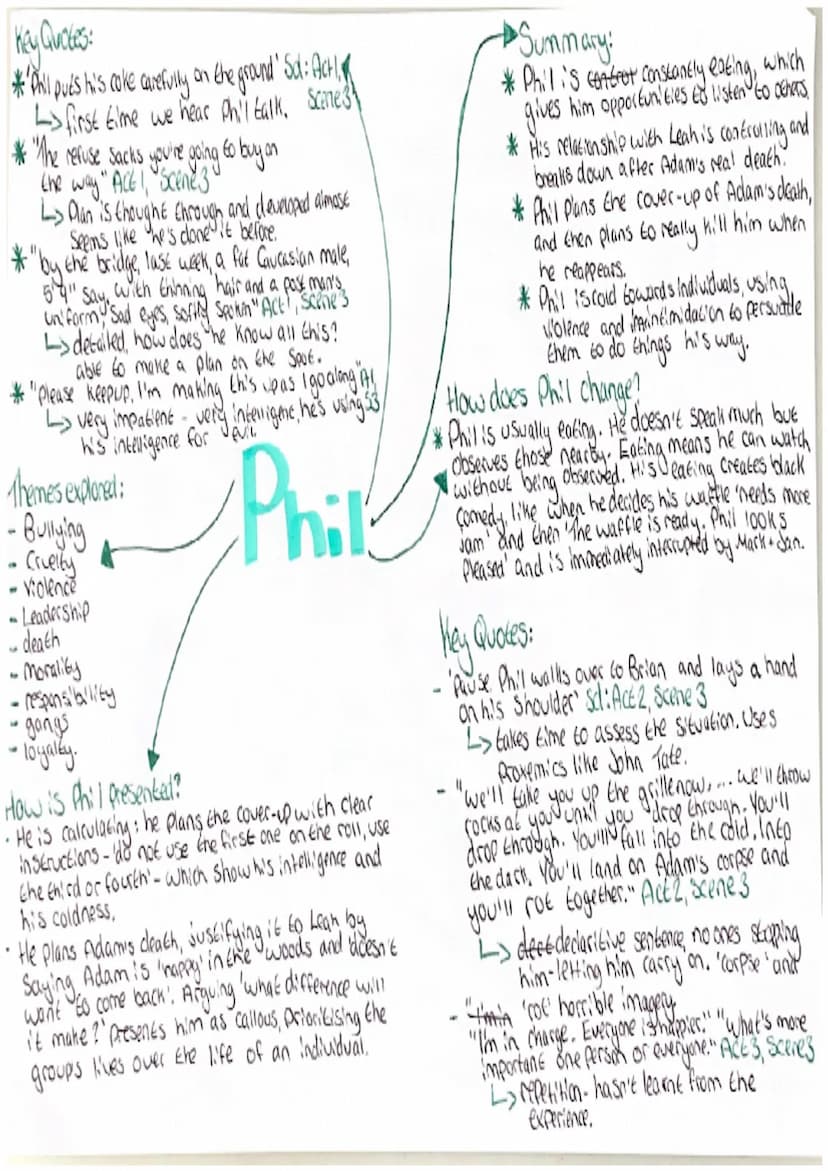 Key Quotes:
* 'Phil puts his coke carefully on the ground' Sd: Act1,
Scene 3
↳ first time we hear Phil talk.
* "The refuse sacks you're going to buy on
the way" Act 1, Scene 3
↳ Plan is thought through and developed almost
seems like he's done it before.
* "by the bridge, last week, a fat Caucasian male,
5'9" say, with thinning hair and a post mans
uniform, sad eyes, softly spoken" Act 1, Scene 3
↳ detailed, how does he know all this?
able to make a plan on the spot.
* "Please keep up, I'm making this up as I go along" A1,
S3
↳ very impatient - very intelligent, he's using
his intelligence for evil.
Themes explored:
- Bullying
- Cruelty
- violence
- Leadership
- death
- morality
- responsibility
- gangs
- loyalty.
Phil
How is Phil presented?
· He is calculating; he plans the cover-up with clear
instructions - 'do not use the first one on the roll, use
the third or fourth' - which show his intelligence and
his coldness.
· He plans Adam's death, justifying it to Leah by
saying Adam is 'happy' in the woods and doesn't
want 'to come back'. Arguing 'what difference will
it make?' presents him as callous, prioritising the
groups lives over the life of an individual.
Summary:
* Phil is constantly eating, which
gives him opportunities to listen to others.
* His relationship with Leah is controlling and
breaks down after Adam's real death.
* Phil plans the cover-up of Adam's death,
and then plans to really kill him when
he reappears.
* Phil is cold towards individuals, using
violence and intimidation to persuade
them to do things his way.
How does Phil change?
* Phil is usually eating. He doesn't speak much but
observes those nearby. Eating means he can watch
without being observed. His eating creates black
comedy, like when he decides his waffle 'needs more
jam' and then 'The waffle is ready. Phil looks
pleased' and is immediately interrupted by Mark + Jan.
Key Quotes:
- 'Pause. Phil walks over to Brian and lays a hand
on his shoulder' Sd: Act 2, Scene 3
↳ takes time to assess the situation. Uses
proxemics like John Tate.
- "we'll take you up the grille now, ... we'll throw
rocks at you until you drop through. You'll
drop through. You'll fall into the cold. Into
the dark. You'll land on Adam's corpse and
you'll rot together." Act 2, Scene 3
↳ declaritive sentence, no ones stopping
him - letting him carry on. 'corpse' and
'rot' horrible imagery
- "I'm in charge. Everyone is happier." "What's more
important one person or everyone." Act 3, Scene 3
↳ repetition - hasn't learnt from the
experience.